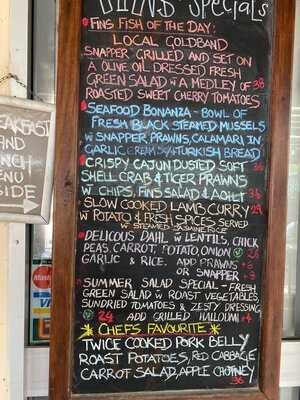 Specials
FINS FISH OF THE DAY:
LOCAL GOLDBAND
SNAPPER GRILLED AND SET ON
A OLIVE OIL DRESSED FRESH
GREEN SALAD W A MEDLEY OF 38
ROASTED SWEET CHERRY TOMATOES
SEAFOOD BONANZA - BOWL OF
FRESH BLACK STEAMED MUSSELS
W SNAPPER PRAWNS, CALAMARI IN
GARLIC CREAM SCE/TURKISH BREAD
CRISPY CAJUN DUSTED SOFT 36
SHELL CRAB & TIGER PRAWNS
W CHIPS, FINS SALAD & AOLI 36
SLOW COOKED LAMB CURRY 29
W POTATO & FRESH SPICES SERVED
W STEAMED JASMINE RICE
DELICOUS DAHL W LENTILS, CHICK
PEAS, CARROT, POTATO, ONION V 26
GARLIC & RICE. ADD PRAWNS +6
OR SNAPPER +3
SUMMER SALAD SPECIAL - FRESH
GREEN SALAD W ROAST VEGETABLES,
SUNDRIED TOMATOES & ZESTY DRESSING
V 24 ADD GRILLED HALLOUMI +4
* CHEFS FAVOURITE *
TWICE COOKED PORK BELLY
ROAST POTATOES, RED CABBAGE
CARROT SALAD, APPLE CHUTNEY
36
BREAKFAST
AND
LUNCH
MENU
INSIDE
MasterCard
VISA